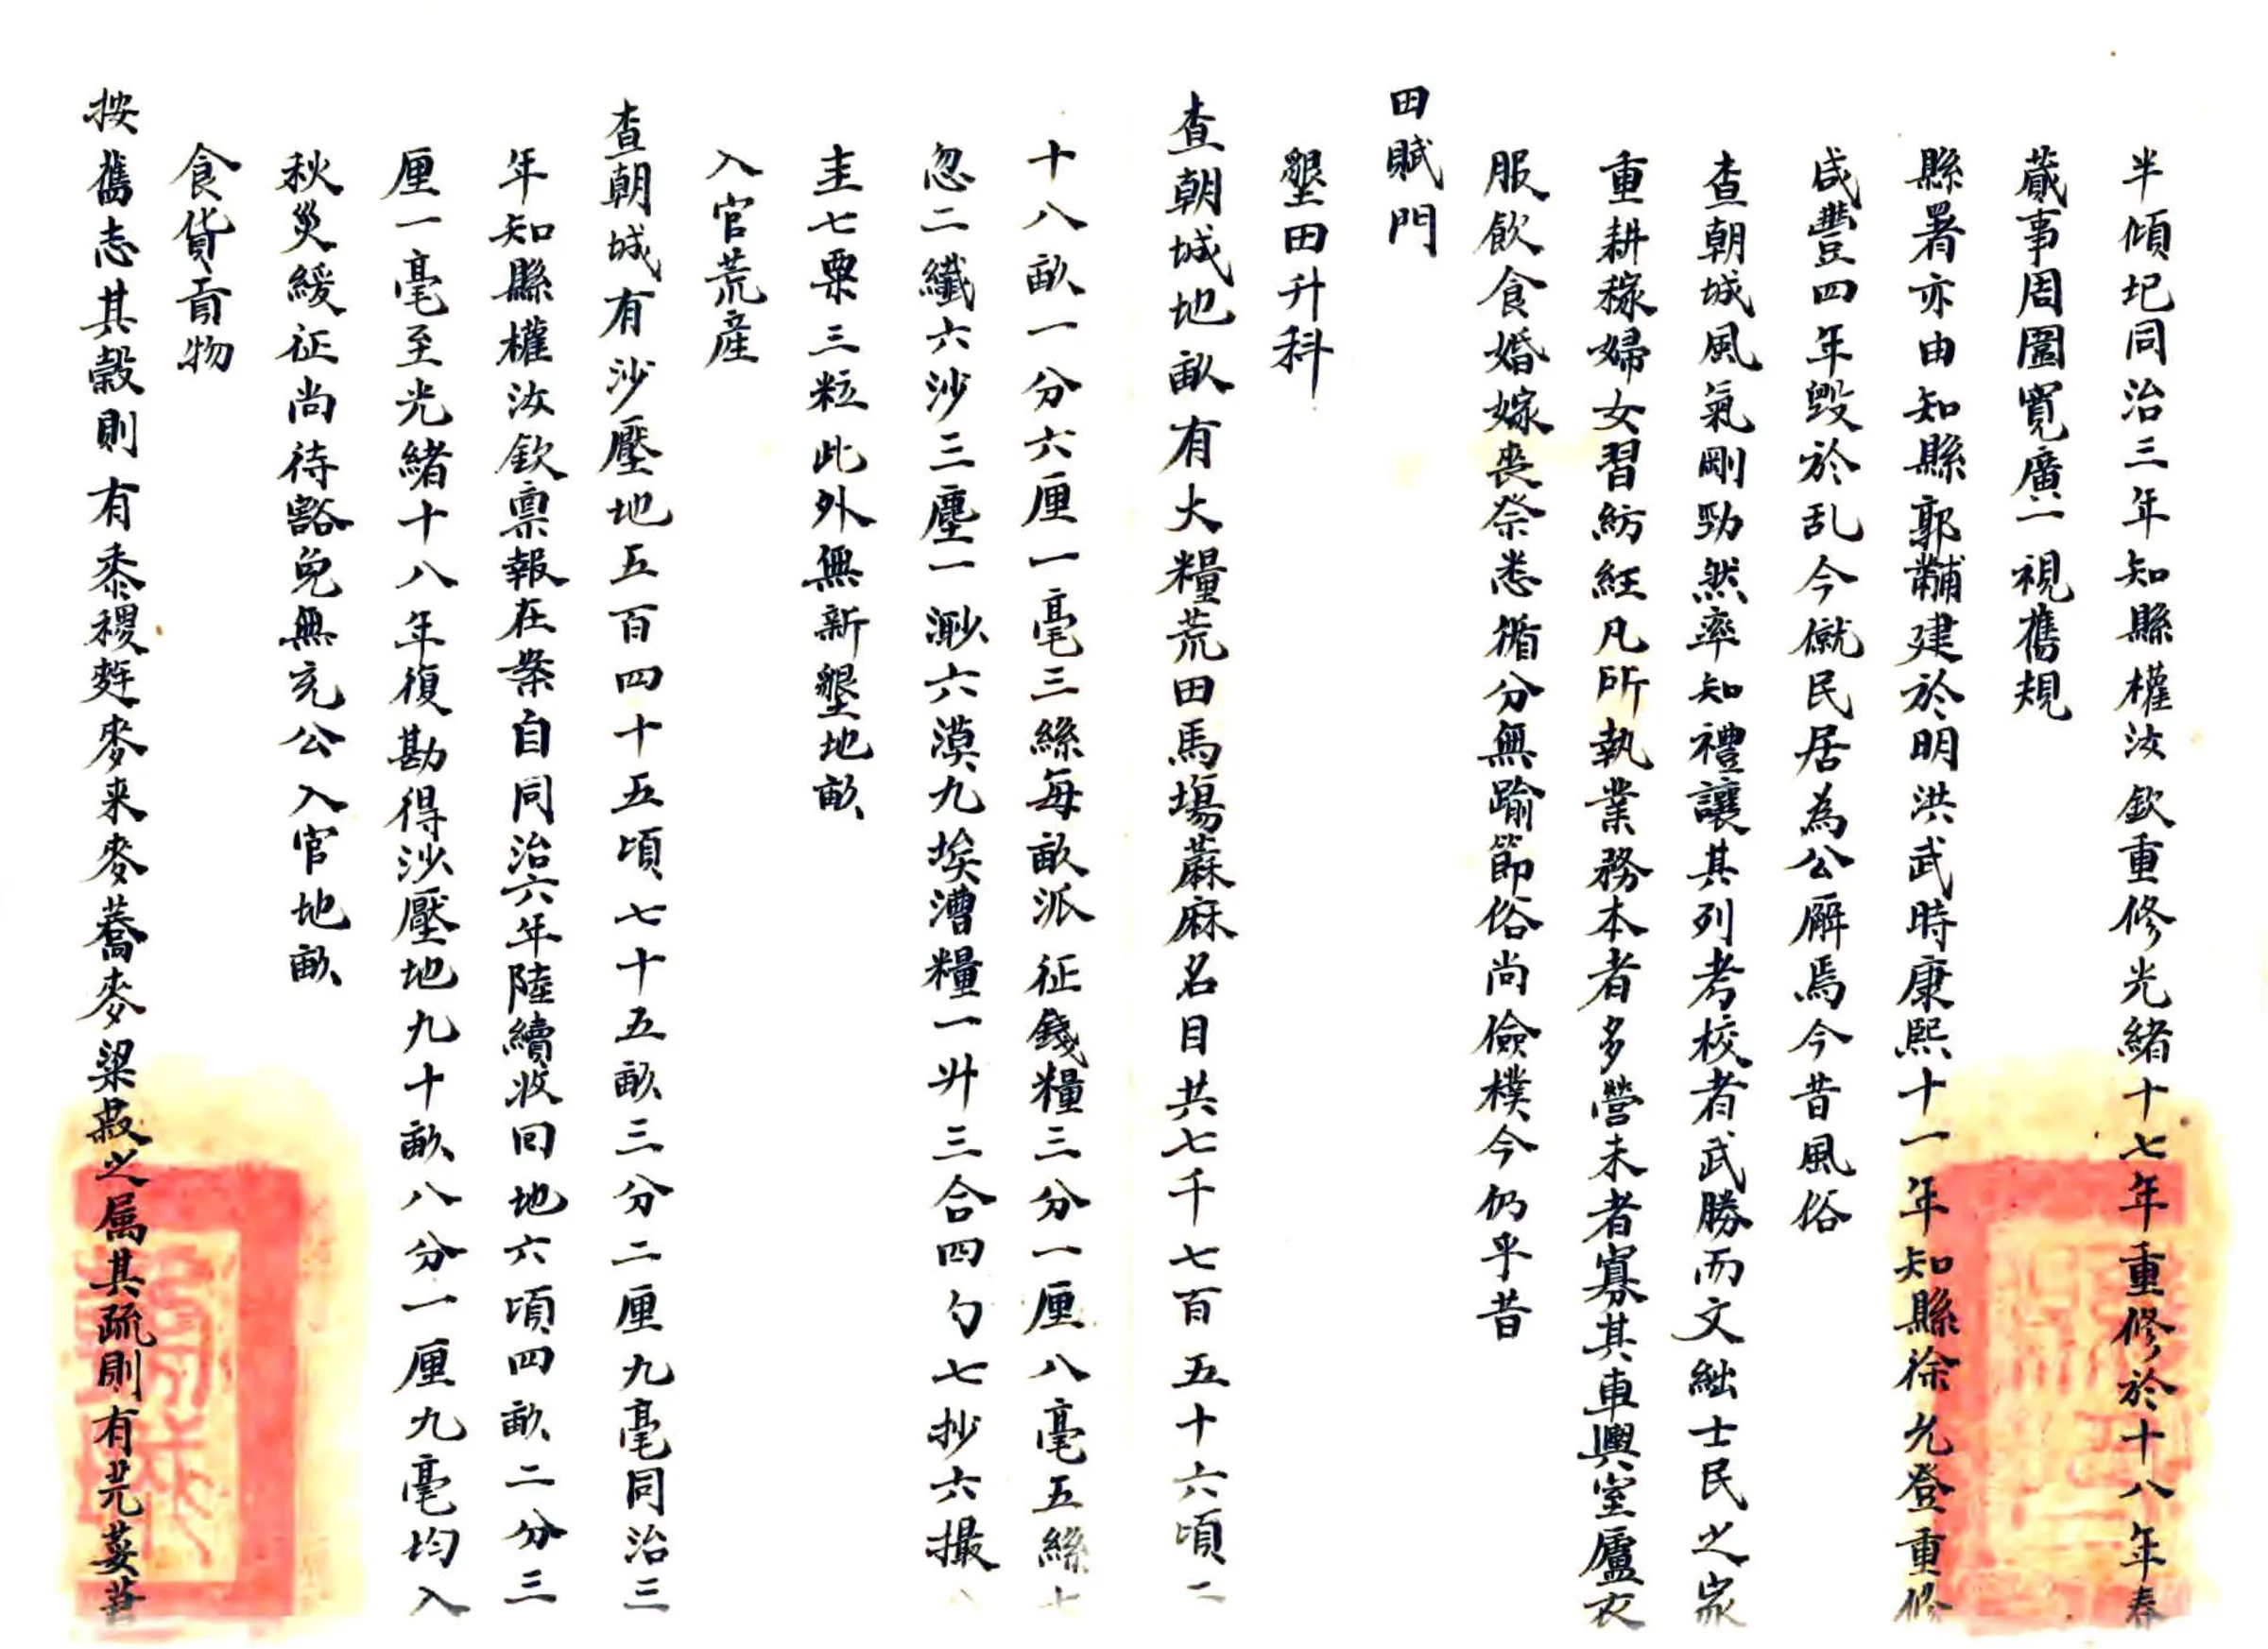 半傾圯同治三年知縣權汝欽重修光緒十七年重修於十八年春
蕆事周圍寬廣一視舊規
縣署亦由知縣郭黼建於明洪武時康熙十一年知縣徐允登重修
咸豐四年毀於乱今僦民居為公廨焉今昔風俗
查朝城風氣剛勁然率知禮讓其列考校者武勝而文絀士民之家
重耕稼婦女習紡紝凡所執業務本者多營末者寡其車輿室廬衣
服飲食婚嫁喪祭悉循分無踰節俗尚儉樸今仍乎昔
田賦門
墾田升科
查朝城地畝有大糧荒田馬塲蔴麻名目共七千七百五十六頃二
十八畝一分六厘一毫三絲每畝派征錢糧三分一厘八毫五絲七
忽二纖六沙三塵一渺六漠九埃漕糧一升三合四勺七抄六撮
圭七粟三粒此外無新墾地畝
入官荒産
查朝城有沙壓地五百四十五頃七十五畝三分二厘九毫同治三
年知縣權汝欽禀報在案自同治六年陸續收回地六頃四畝二分三
厘一毫至光緒十八年復勘得沙壓地九十畝八分一厘九毫均入
秋災緩征尚待豁免無充公入官地畝
食貨貢物
按舊志其穀則有黍稷麰麥来麥蕎麥粱菽之属其疏則有芫荽